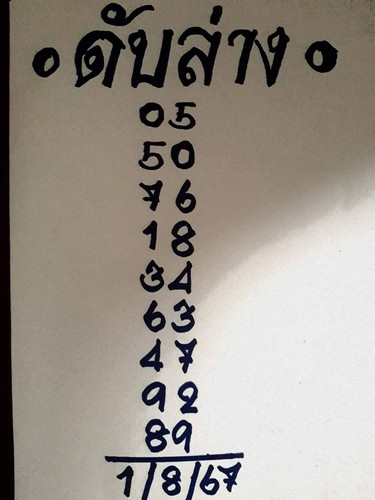 • ดับล่าง •
05
50
76
18
34
63
47
92
89
1/8/67